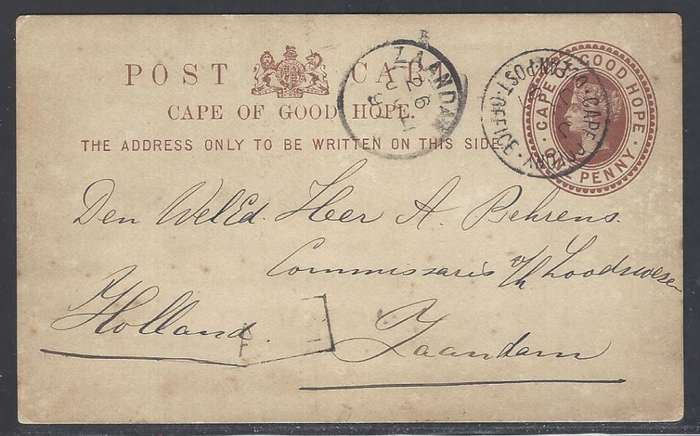 POST CARD
CAPE OF GOOD HOPE.
THE ADDRESS ONLY TO BE WRITTEN ON THIS SIDE.
CAPE OF GOOD HOPE
ONE PENNY
ZAANDAM
POST OFFICE
Den WelEd. Heer A. Behrens.
Commissaris v/h Loodswesen
Holland.
Zaandam